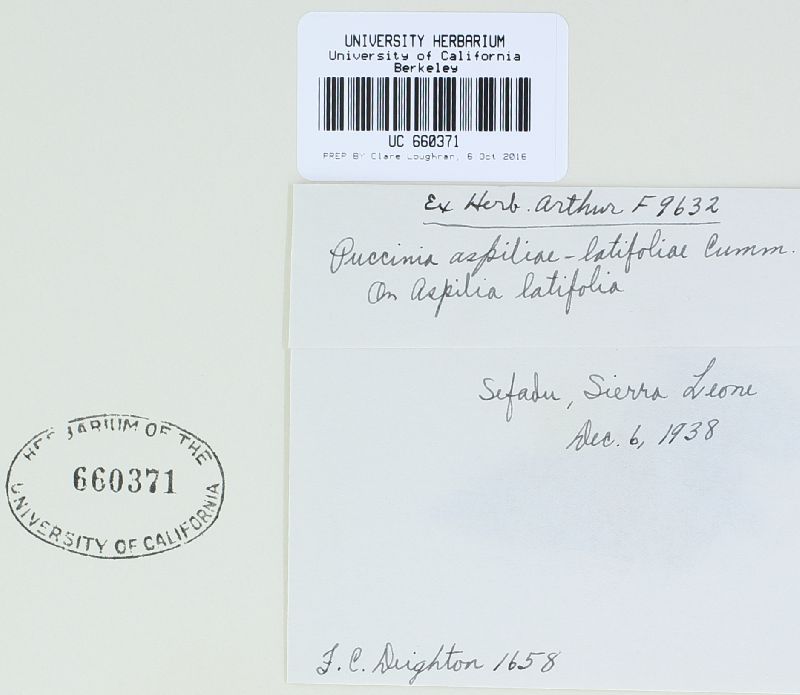 UNIVERSITY HERBARIUM
University of California
Berkeley
UC 660371
PREP BY Clare Loughran, 6 Oct 2016
Ex Herb. Arthur F 9632
Puccinia aspiliae-latifoliae Cumm.
On Aspilia latifolia
Sefadu, Sierra Leone
Dec. 6, 1938
HERBARIUM OF THE
660371
UNIVERSITY OF CALIFORNIA
F. C. Deighton 1658